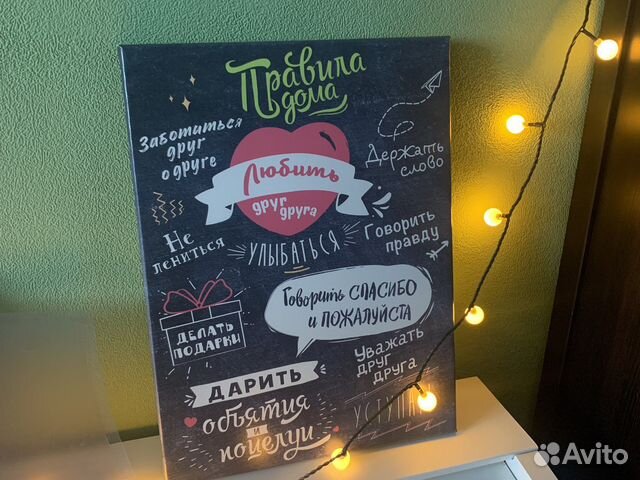 Правила
дома
Заботиться
друг
о друге
Любить
друг
друга
Держать
слово
Не
лениться
УЛЫБАТЬСЯ
Говорить
правду
Говорить СПАСИБО
и ПОЖАЛУЙСТА
ДЕЛАТЬ
ПОДАРКИ
Уважать
друг
друга
ДАРИТЬ
объятия
и
поцелуи
Avito